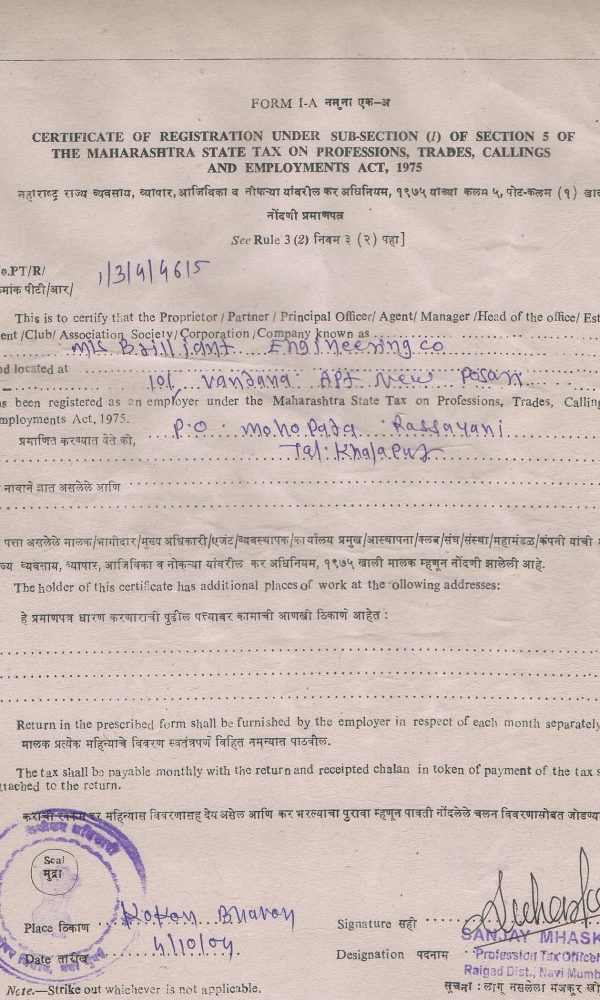 FORM I-A नमुना एक-अ
CERTIFICATE OF REGISTRATION UNDER SUB-SECTION (1) OF SECTION 5 OF
THE MAHARASHTRA STATE TAX ON PROFESSIONS, TRADES, CALLINGS
AND EMPLOYMENTS ACT, 1975
महाराष्ट्र राज्य व्यवसाय, व्यापार, आजिविका व नोकऱ्या यांवरील कर अधिनियम, १९७५ यांच्या कलम ५, पोट-कलम (१) खा
नोंदणी प्रमाणपत्र
See Rule 3 (2) नियम ३ (२) पहा]
o.PT/R/
1/3/4/4615
मांक पीटी/आर/
This is to certify that the Proprietor / Partner / Principal Officer/ Agent/ Manager /Head of the office/ Est
ent /Club/ Association Society/Corporation /Company known as
M/s Brilliant Engineering co
nd located at 101 Vandana Apt New Posari
as been registered as an employer under the Maharashtra State Tax on Professions, Trades, Calling
mployments Act, 1975. P.O: Mohopada : Rassayani
प्रमाणित करण्यात येते की, Tal: Khalapur
नावाने ज्ञात असलेले आणि
पत्ता असलेले मालक/भागीदार/मुख्य अधिकारी/एजंट/व्यवस्थापक/कार्यालय प्रमुख/आस्थापना/क्लब/संघ/संस्था/महामंडळ/कंपनी यांची
ज्य व्यवसाय, व्यापार, आजिविका व नोकऱ्या यांवरील कर अधिनियम, १९७५ खाली मालक म्हणून नोंदणी झालेली आहे.
The holder of this certificate has additional places of work at the following addresses:
हे प्रमाणपत्र धारण करणाराची पुढील पत्त्यावर कामाची आणखी ठिकाणे आहेत :
Return in the prescribed form shall be furnished by the employer in respect of each month separately
मालक प्रत्येक महिन्याचे विवरण स्वतंत्रपणे विहित नमुन्यात पाठवील.
The tax shall be payable monthly with the return and receipted chalan in token of payment of the tax s
ttached to the return.
कराची रक्कम दर महिन्यास विवरणासह देय असेल आणि कर भरल्याचा पुरावा म्हणून पावती नोंदलेले चलन विवरणासोबत जोडण्या
Seal
मुद्रा
Place ठिकाण Kokon Bhavan
Signature सही
SANJAY MHASK
Date तारीख 4/10/04
Designation पदनाम
Profession Tax Officer
Raigad Dist., Navi Mumb
Note.—Strike out whichever is not applicable.
सूचना : लागू नसलेला मजकूर खो